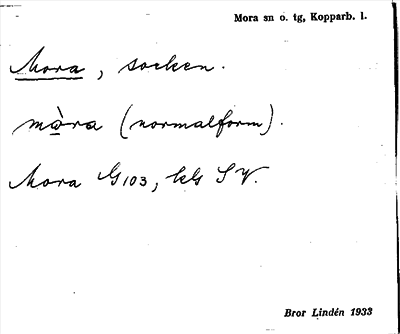 Mora sn o. tg, Kopparb. l.
Mora, socken.
mòra (normalform).
Mora G103, kls SV.
Bror Lindén 1933